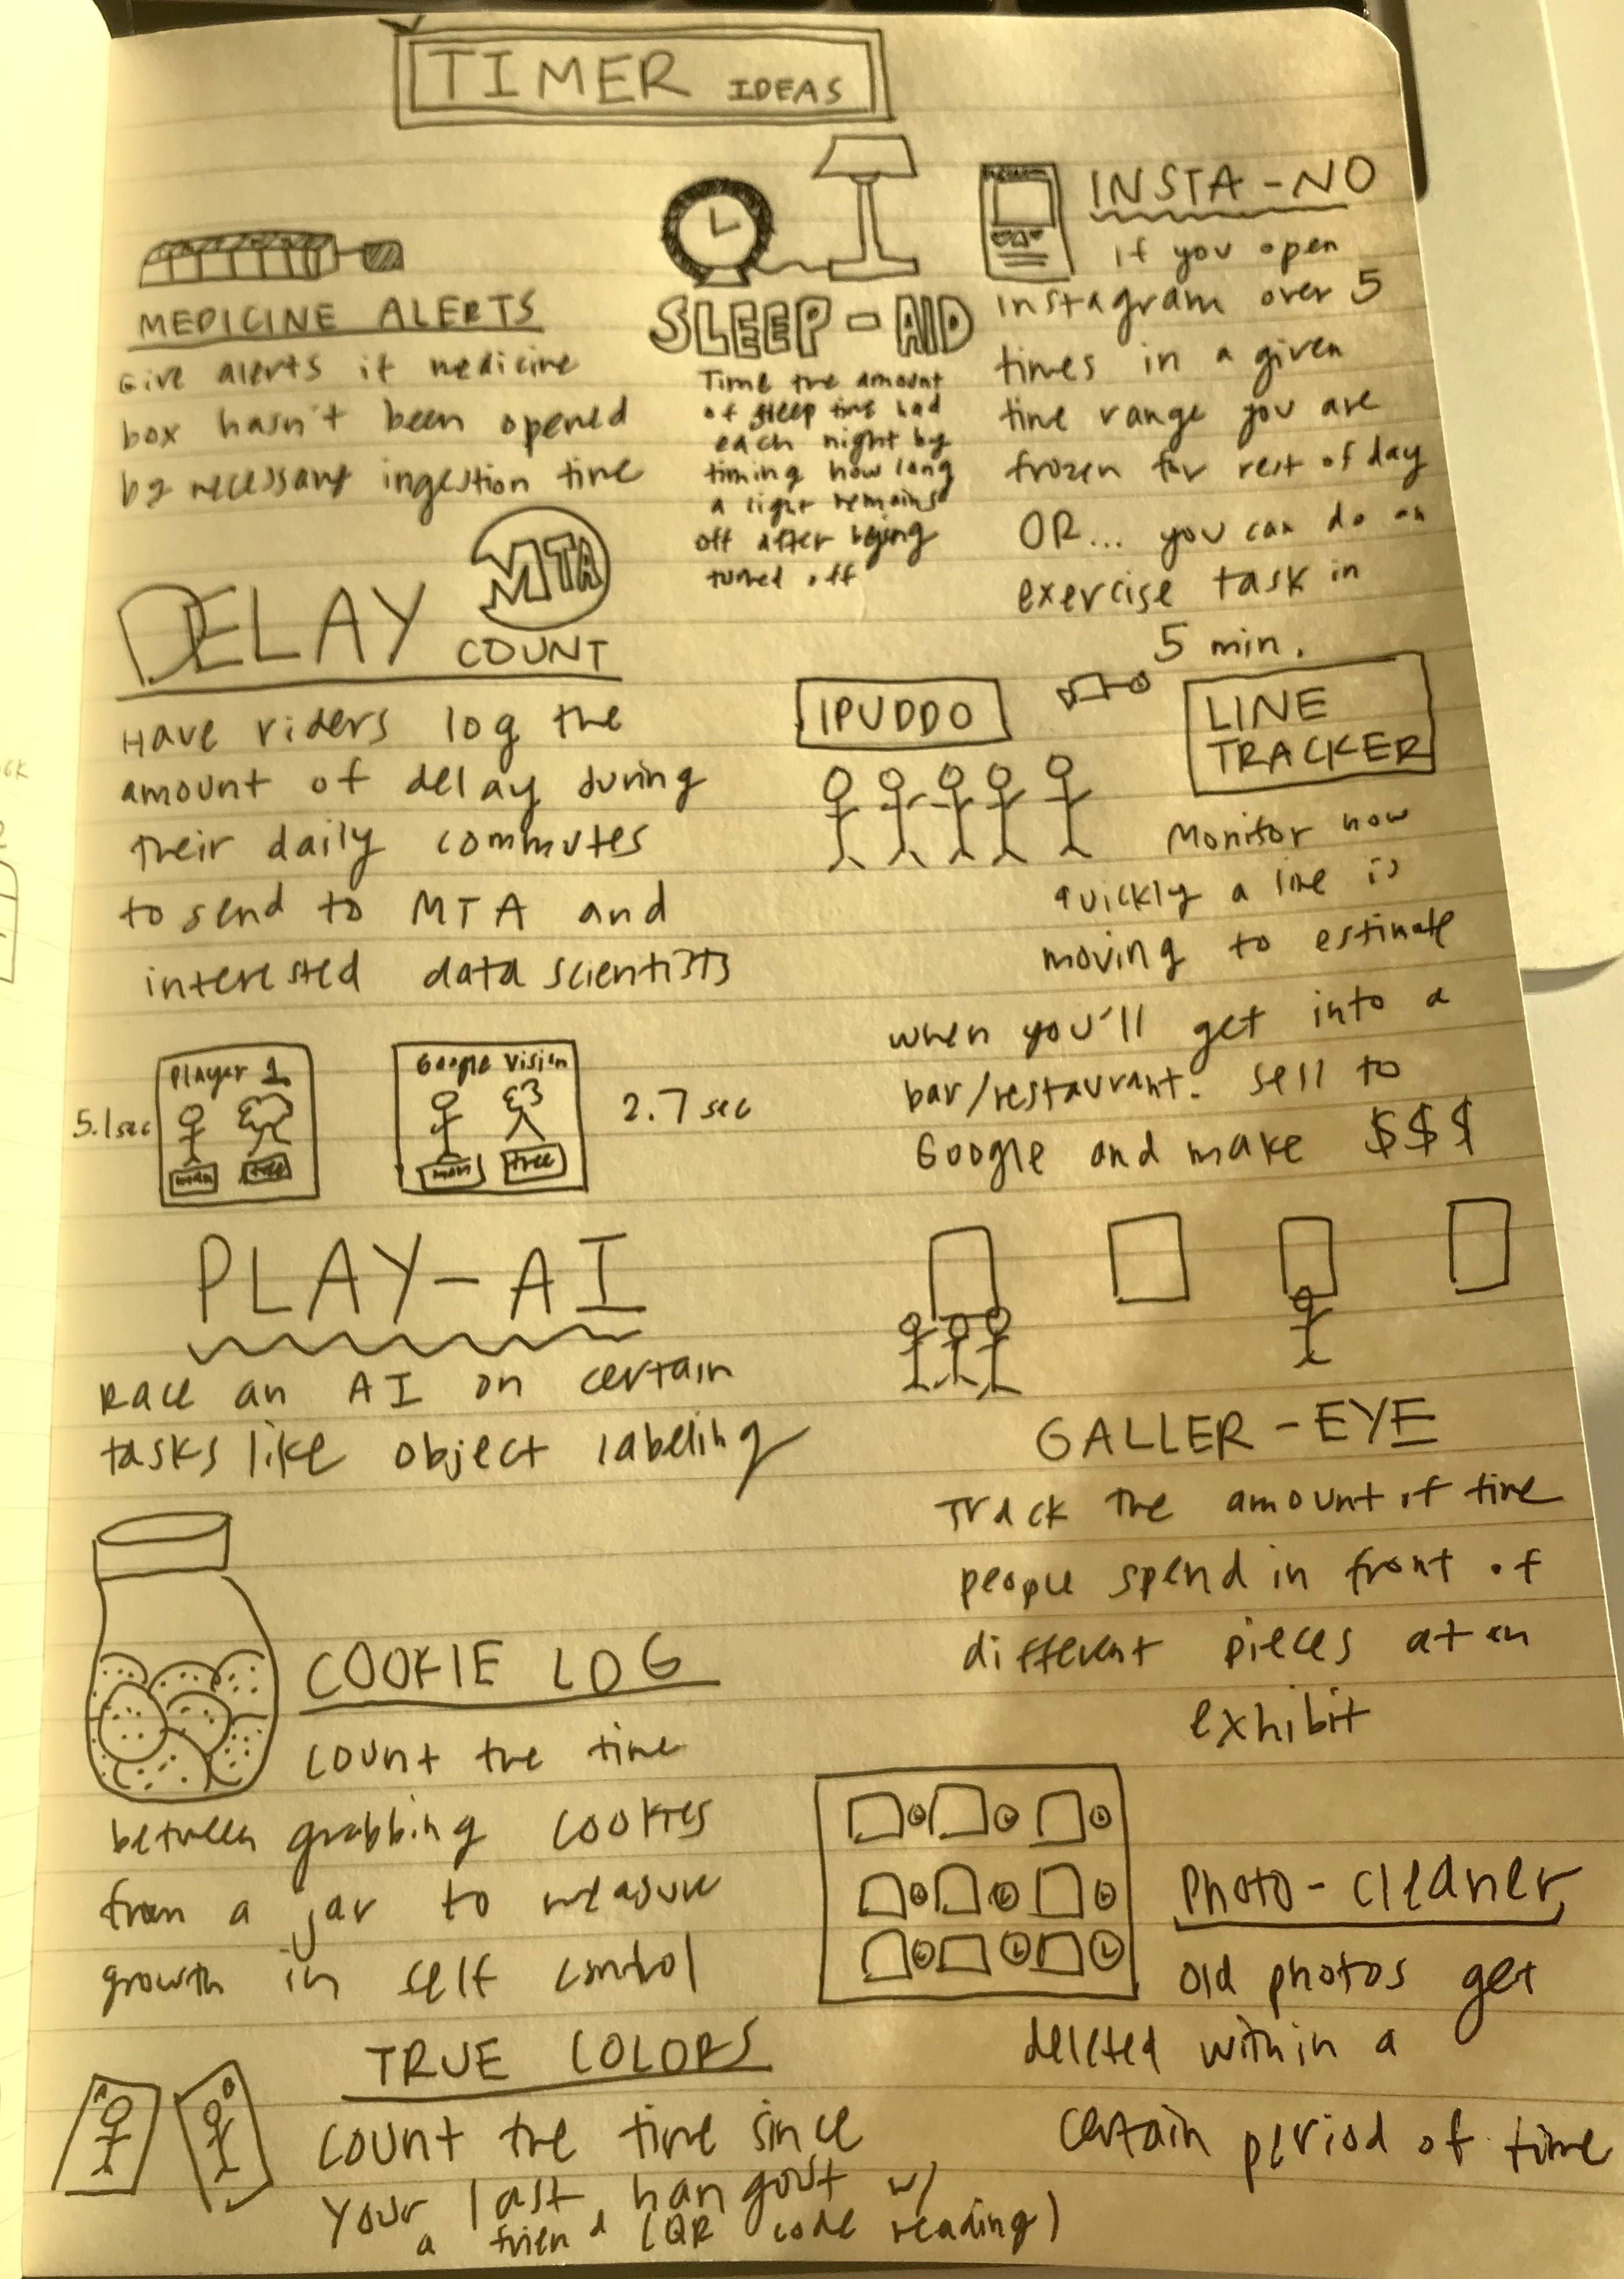 TIMER IDEAS
MEDICINE ALERTS
Give alerts if medicine
box hasn't been opened
by necessary ingestion time
SLEEP-AID
Time the amount
of sleep time had
each night by
timing how long
a light remains
off after being
turned off
INSTA-NO
if you open
instagram over 5
times in a given
time range you are
frozen for rest of day
OR... you can do an
exercise task in
5 min.
DELAY MTA
COUNT
Have riders log the
amount of delay during
their daily commutes
to send to MTA and
interested data scientists
IPUDDO
LINE
TRACKER
Monitor how
quickly a line is
moving to estimate
when you'll get into a
bar/restaurant. Sell to
Google and make $$$
5.1sec
Player 1
man tree
Google Vision
man tree
2.7 sec
PLAY-AI
Race an AI on certain
tasks like object labeling
GALLER-EYE
Track the amount of time
people spend in front of
different pieces at an
exhibit
COOKIE LOG
count the time
between grabbing cookies
from a jar to measure
growth in self control
Photo-cleaner
old photos get
deleted within a
certain period of time
TRUE COLORS
count the time since
your last hangout w/
a friend (QR code reading)